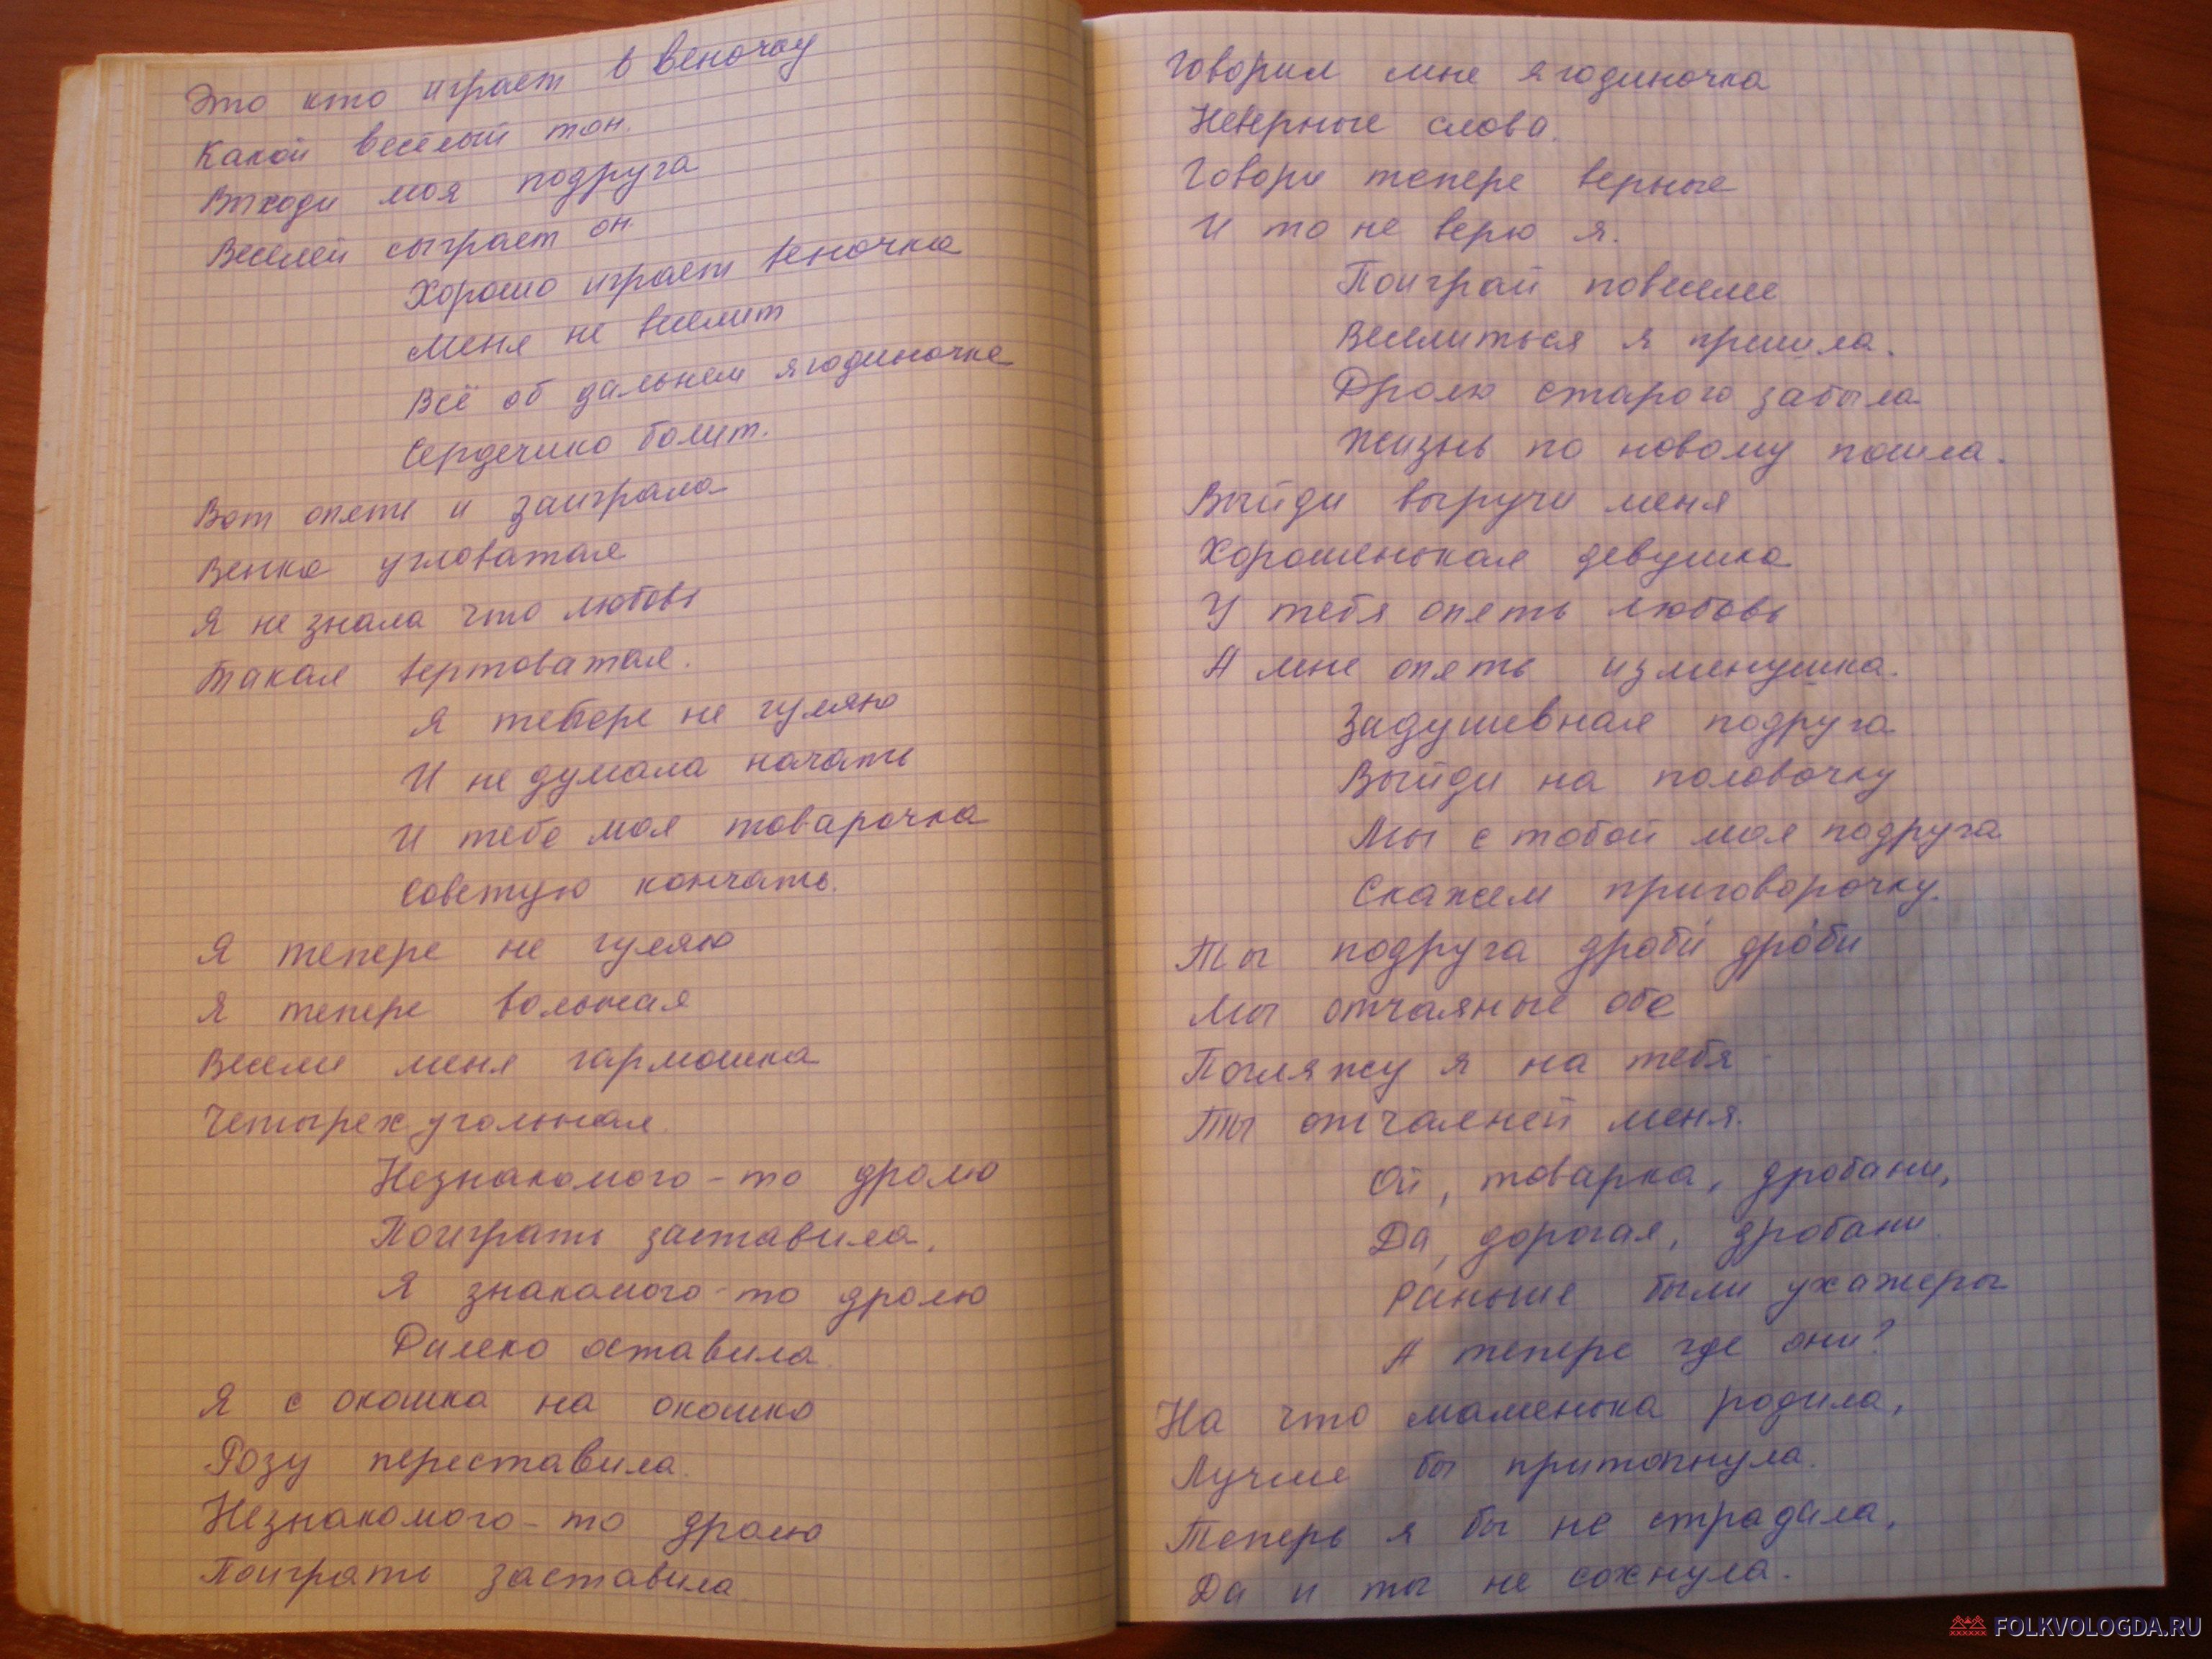 Это кто играет в веночку
Какой весёлый тон.
Выходи моя подруга
Веселей сыграет он.
Хорошо играет веночка
Меня не веселит
Всё об дальнем ягодиночке
Сердечико болит.
Вот опяти и заиграла
Венка угловатая
Я не знала что любовь
Такая вертоватая.
Я тепере не гуляю
И не думала начать
И тебе моя товарочка
Советую кончать.
Я тепере не гуляю
Я тепере вольная
Весели меня гармошка
Четырехугольная.
Незнакомого-то дролю
Поиграть заставила,
Я знакомого-то дролю
Далеко оставила.
Я с окошка на окошко
Розу переставила.
Незнакомого-то дролю
Поиграть заставила.
Говорил мне ягодиночка
Неверные слова.
Говори тепере верные
И то не верю я.
Поиграй повеселее
Веселиться я пришла.
Дролю старого забыла
Жизнь по новому пошла.
Выйди выручи меня
Хорошенькая девушка
У тебя опять любовь
А мне опять изменушка.
Задушевная подруга
Выйди на половочку
Мы с тобой моя подруга
Скажем приговорочку.
Ты подруга дроби дроби
Мы отчаяные обе
Погляжу я на тебя
Ты отчаяней меня.
Ой, товарка, дробани,
Да, дорогая, дробани.
Раньше были ухажеры
А тепере где они?
На что маменька родила,
Лучше бы притопнула.
Теперь я бы не страдала,
Да и ты не сохнула.
FOLKVOLOGDA.RU